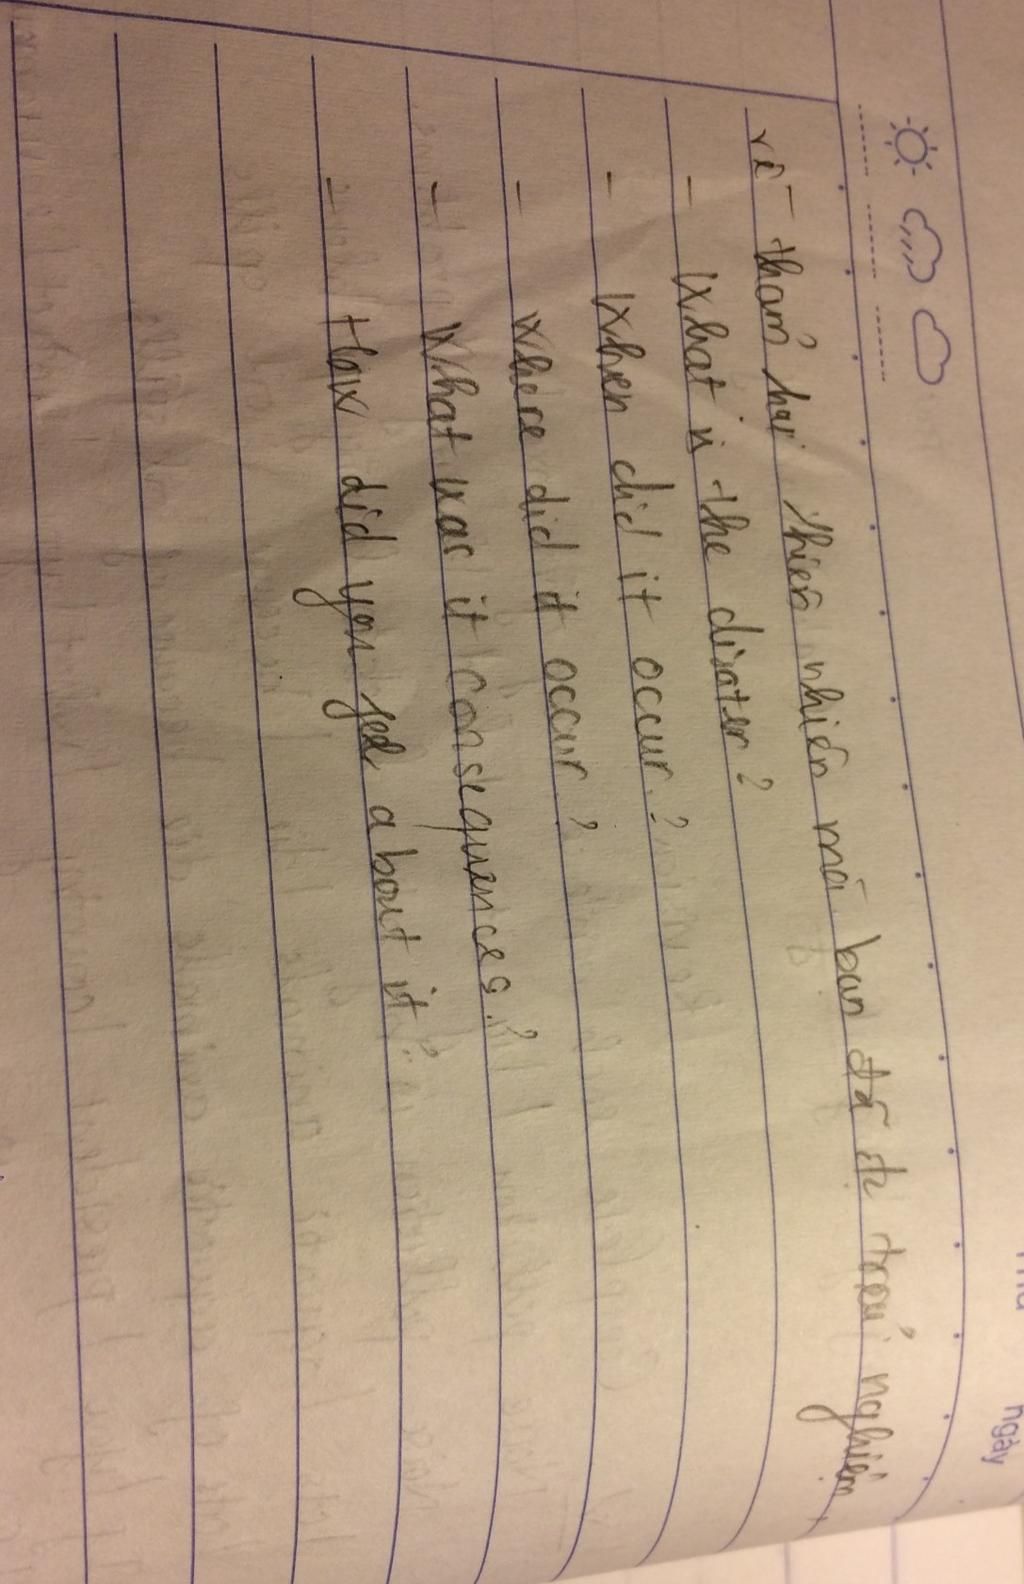 ngày
về thảm họa thiên nhiên mà bạn đã đc trải nghiệm
- What is the disater?
- When did it occur?
- Where did it occur?
- What was it consequences?
- How did you feel about it?